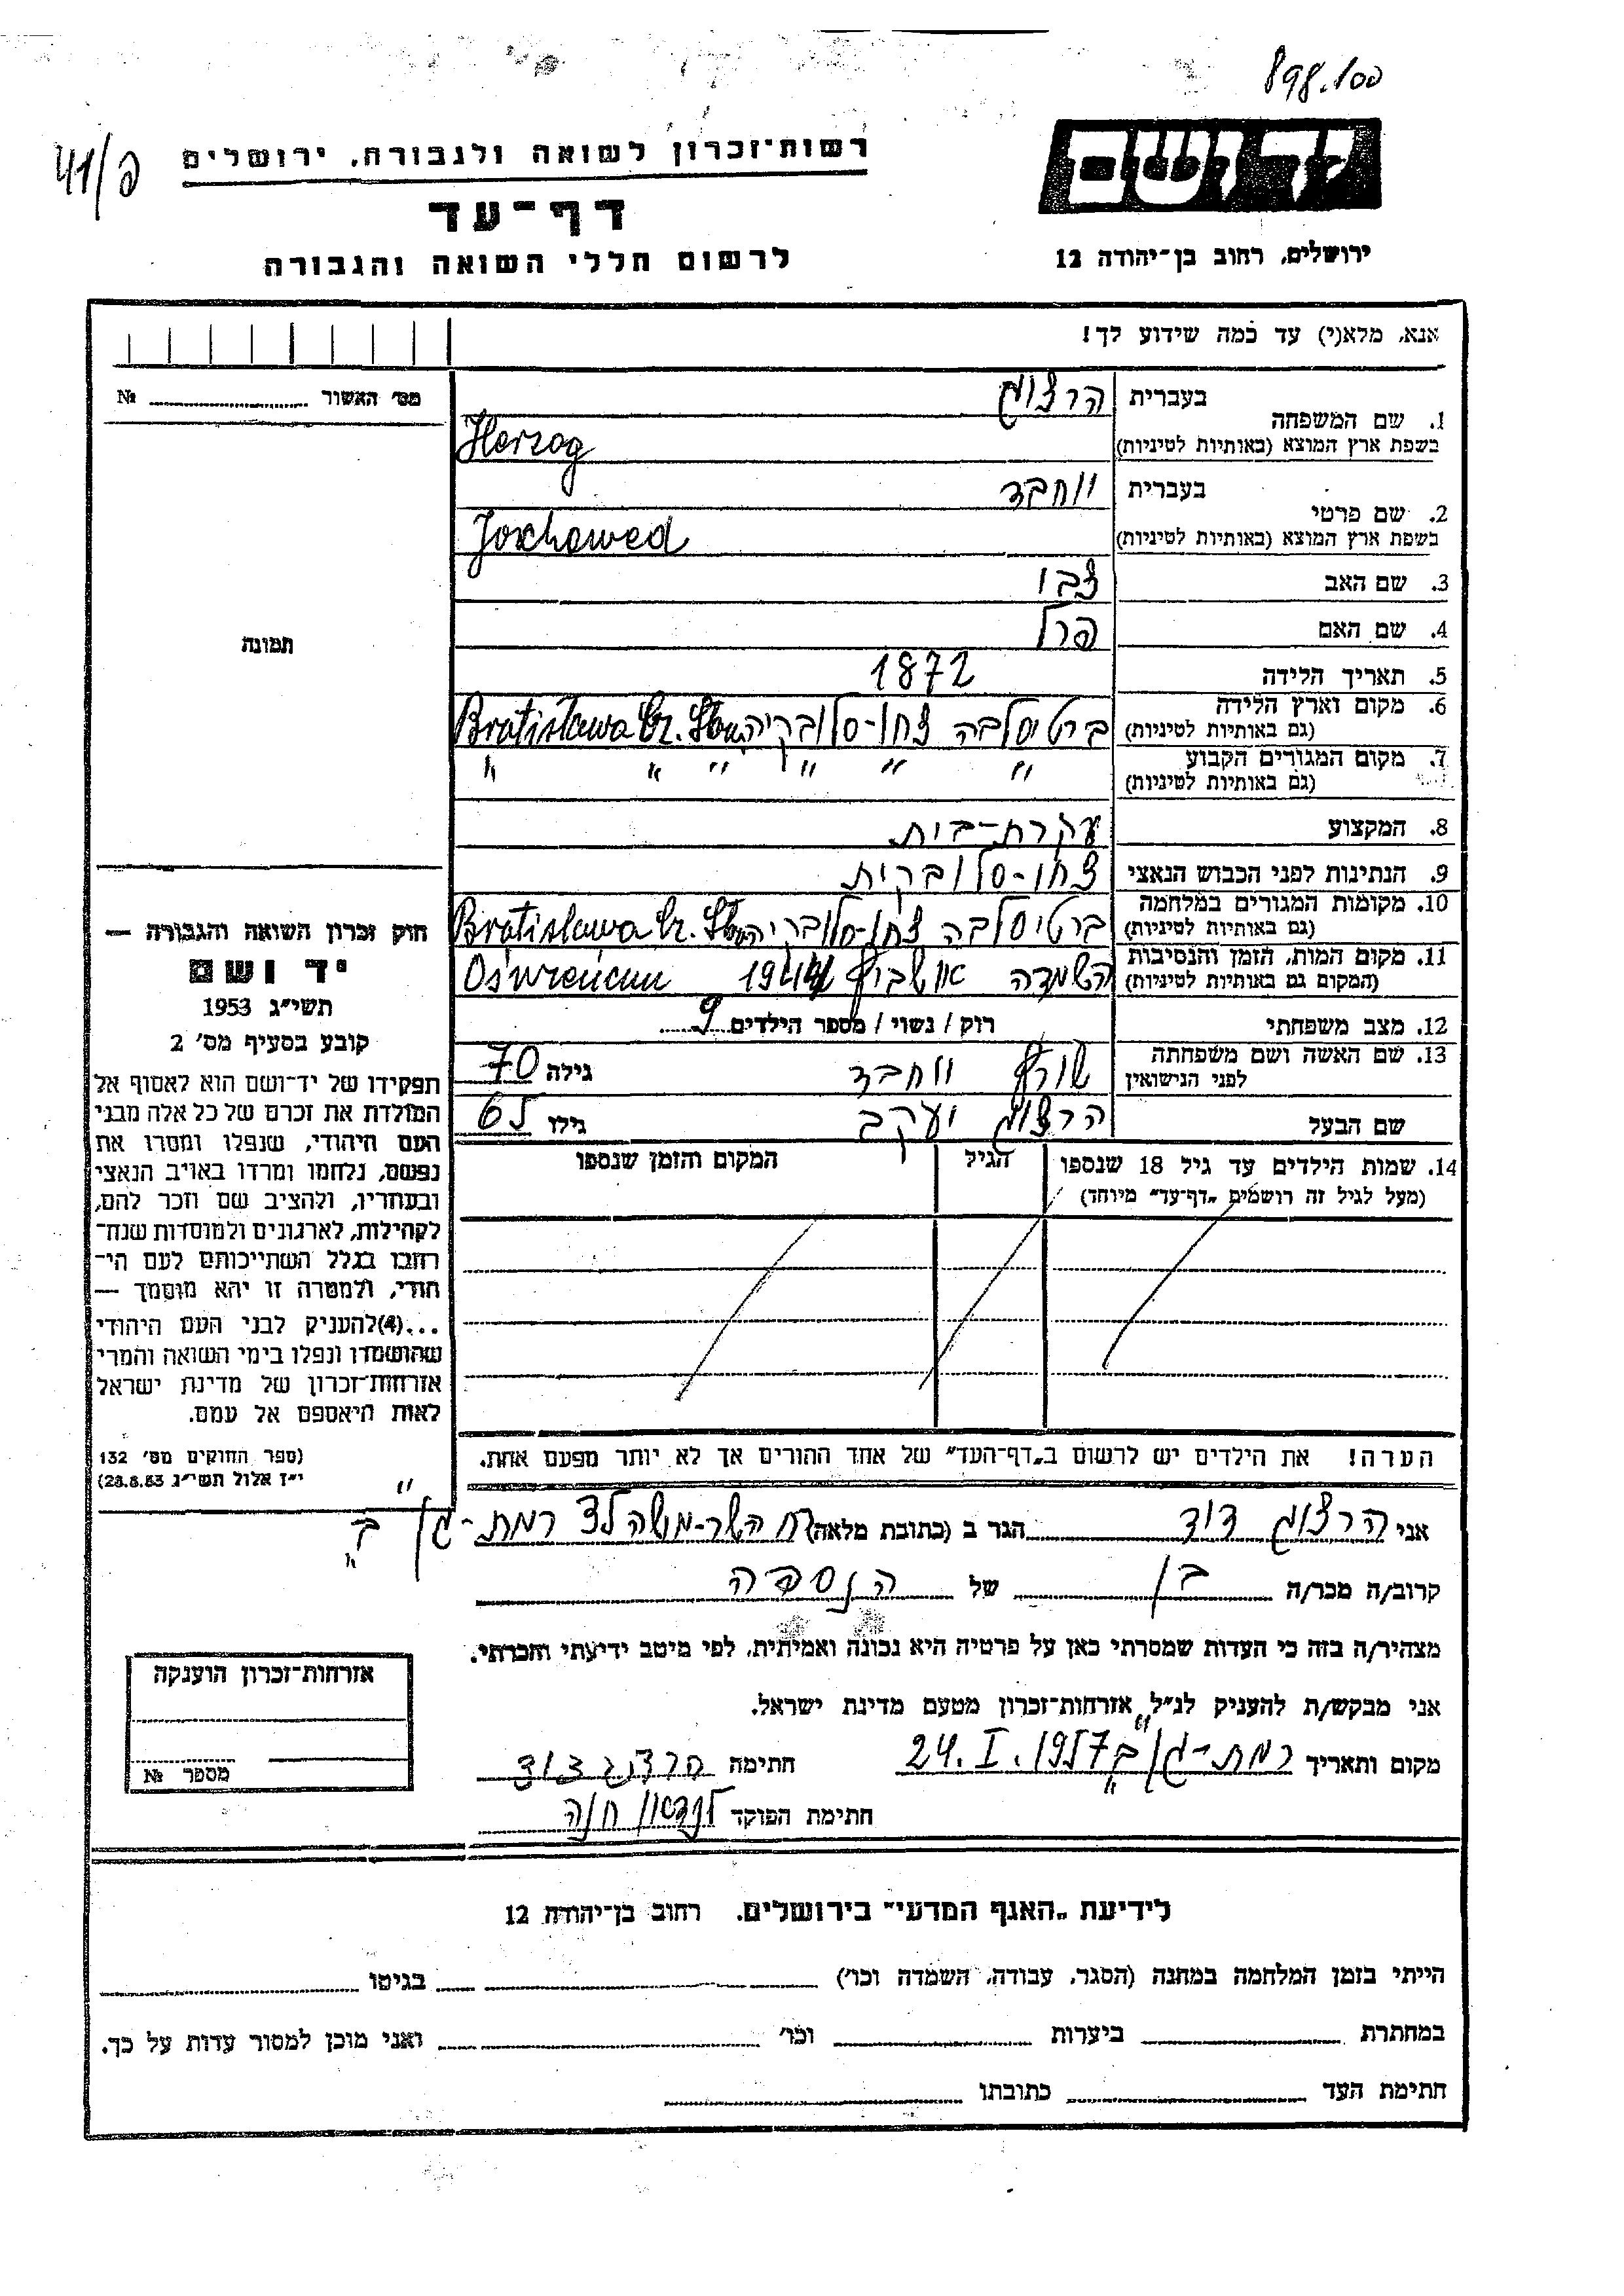 898.100
41/פ
רשות־זכרון לשואה ולגבורה, ירושלים
דף־עד
לרשום חללי השואה והגבורה
יד ושם
ירושלים, רחוב בן־יהודה 12
אנא, מלא(י) עד כמה שידוע לך!
מס' האשור №
תמונה
1. שם המשפחה בעברית הרצוג
בשפת ארץ המוצא (באותיות לטיניות) Herzog
2. שם פרטי בעברית יוחבד
בשפת ארץ המוצא (באותיות לטיניות) Jochewed
3. שם האב צבי
4. שם האם פרל
5. תאריך הלידה 1872
6. מקום וארץ הלידה ברטיסלבה צחו-סלובקיה Bratislawa
(גם באותיות לטיניות)
7. מקום המגורים הקבוע " " " " " "
(גם באותיות לטיניות)
8. המקצוע עקרת-בית
9. הנתינות לפני הכבוש הנאצי צחו-סלובקית
10. מקומות המגורים במלחמה ברטיסלבה צחו-סלובקיה Bratislawa
(גם באותיות לטיניות)
11. מקום המות, הזמן והנסיבות השמדה 1944
(המקום גם באותיות לטיניות)
12. מצב משפחתי רוק / נשוי / מספר הילדים 9
13. שם האשה ושם משפחתה יוחבד גילה 70
לפני הנישואין
שם הבעל הרצוג יעקב גילו 65
14. שמות הילדים עד גיל 18 שנספו הגיל המקום והזמן שנספו
(מעל לגיל זה רושמים „דף־עד" מיוחד)
הערה! את הילדים יש לרשום ב„דף־העד" של אחד ההורים אך לא יותר מפעם אחת.
חוק זכרון השואה והגבורה —
יד ושם
תשי"ג 1953
קובע בסעיף מס' 2
תפקידו של יד־ושם הוא לאסוף אל
המולדת את זכרם של כל אלה מבני
העם היהודי, שנפלו ומסרו את
נפשם, נלחמו ומרדו באויב הנאצי
ובעוזריו, ולהציב שם וזכר להם,
לקהילות, לארגונים ולמוסדות שנח־
רבו בגלל השתייכותם לעם הי־
הודי, ולמטרה זו יהא מוסמך —
...(4)להעניק לבני העם היהודי
שהושמדו ונפלו בימי השואה והמרי
אזרחות־זכרון של מדינת ישראל
לאות היאספם אל עמם.
(ספר החוקים מס' 132
י"ז אלול תשי"ג 28.8.53)
אני הרצוג דוד הגר ב (כתובת מלאה) השר-משה רמת-גן ב'
קרוב/ה מכר/ה בן של הנספה
מצהיר/ה בזה כי העדות שמסרתי כאן על פרטיה היא נכונה ואמיתית, לפי מיטב ידיעתי והכרתי.
אני מבקש/ת להעניק לנ"ל אזרחות־זכרון מטעם מדינת ישראל.
מקום ותאריך רמת-גן ב' 24.I.1957 חתימה הרצוג דוד
חתימת הפוקד לנדאו חנה
אזרחות־זכרון הוענקה
מספר №
לידיעת „האגף המדעי" בירושלים. רחוב בן־יהודה 12
הייתי בזמן המלחמה במחנה (הסגר, עבודה, השמדה וכו') בגיטו
במחתרת ביערות וכו' ואני מוכן למסור עדות על כך.
חתימת העד כתובתו